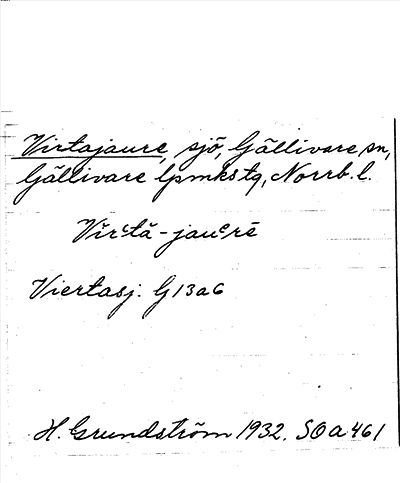 Virtajaure, sjö, Gällivare sn,
Gällivare lpmks tg, Norrb. l.
Vĭrᵋtă-jauᵉrē
Viertasj. G13a6
H. Grundström 1932. SOa 461